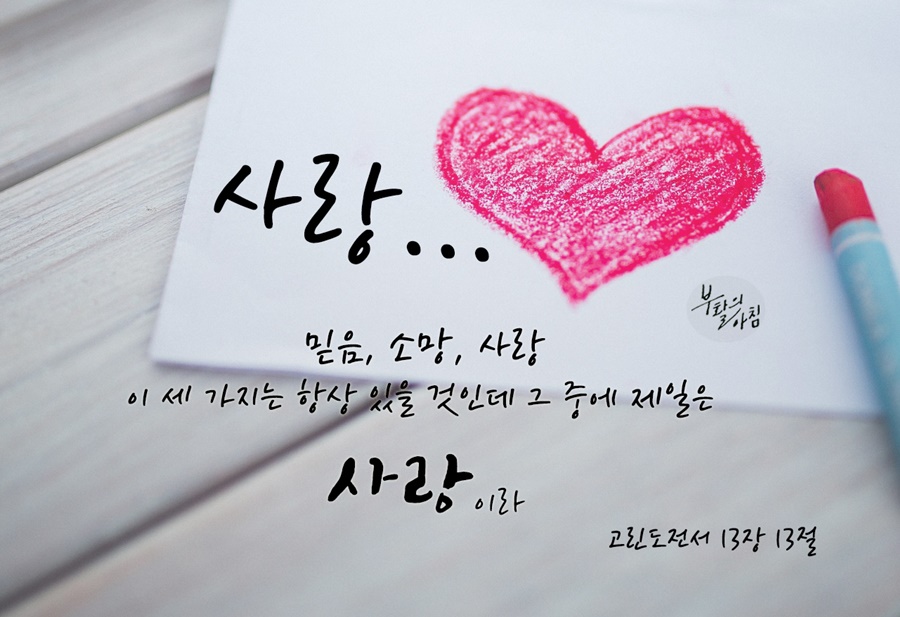 사랑...
부활의
아침
믿음, 소망, 사랑
이 세 가지는 항상 있을 것인데 그 중에 제일은
사랑이라
고린도전서 13장 13절